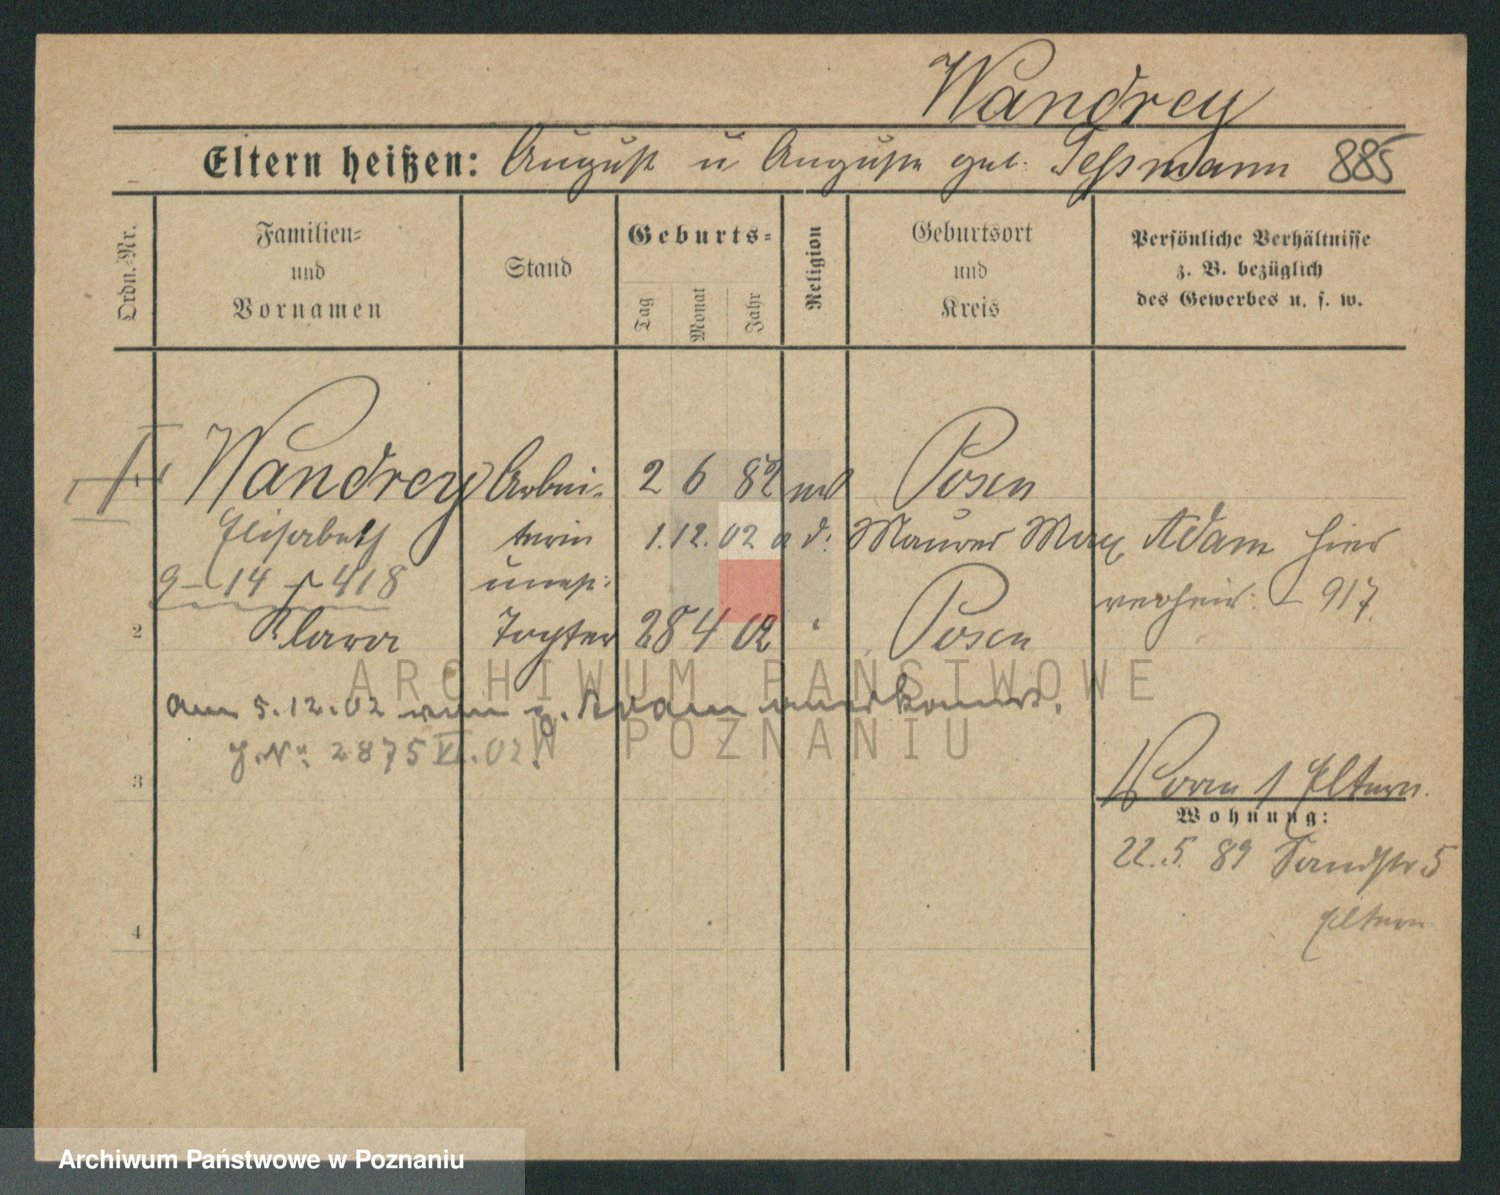 Wandrey
Eltern heißen: August u Auguste geb. Tessmann 885
Ordn.-Nr.
Familien-
und
Vornamen
Stand
Geburts-
Tag
Monat
Jahr
Religion
Geburtsort
und
Kreis
Persönliche Verhältnisse
z. B. bezüglich
des Gewerbes u. s. w.
Wandrey Arbei- 2 6 82 Posen
Elisabeth terin 1.12.02 a d. Maurer Max Adam hier
9-14 418 verheir. 917
2 Klara Tochter 28 4 02 " Posen
am 5.12.02 vom g. Adam anerkannt.
J.Nr. 2875 VI.02.
3
Eltern
Wohnung:
22.5.89 Sandstr 5
Eltern
4
ARCHIWUM PAŃSTWOWE
W POZNANIU
Archiwum Państwowe w Poznaniu